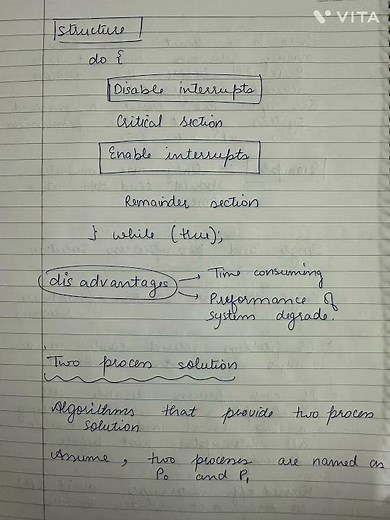 VITA
structure
do {
Disable interrupts
Critical section
Enable interrupts
Remainder section
} while (true);
disadvantages → Time consuming
→ Preformance of
system degrade.
Two process solution
Algorithms that provide two process
solution
Assume, two processes are named as
P0 and P1